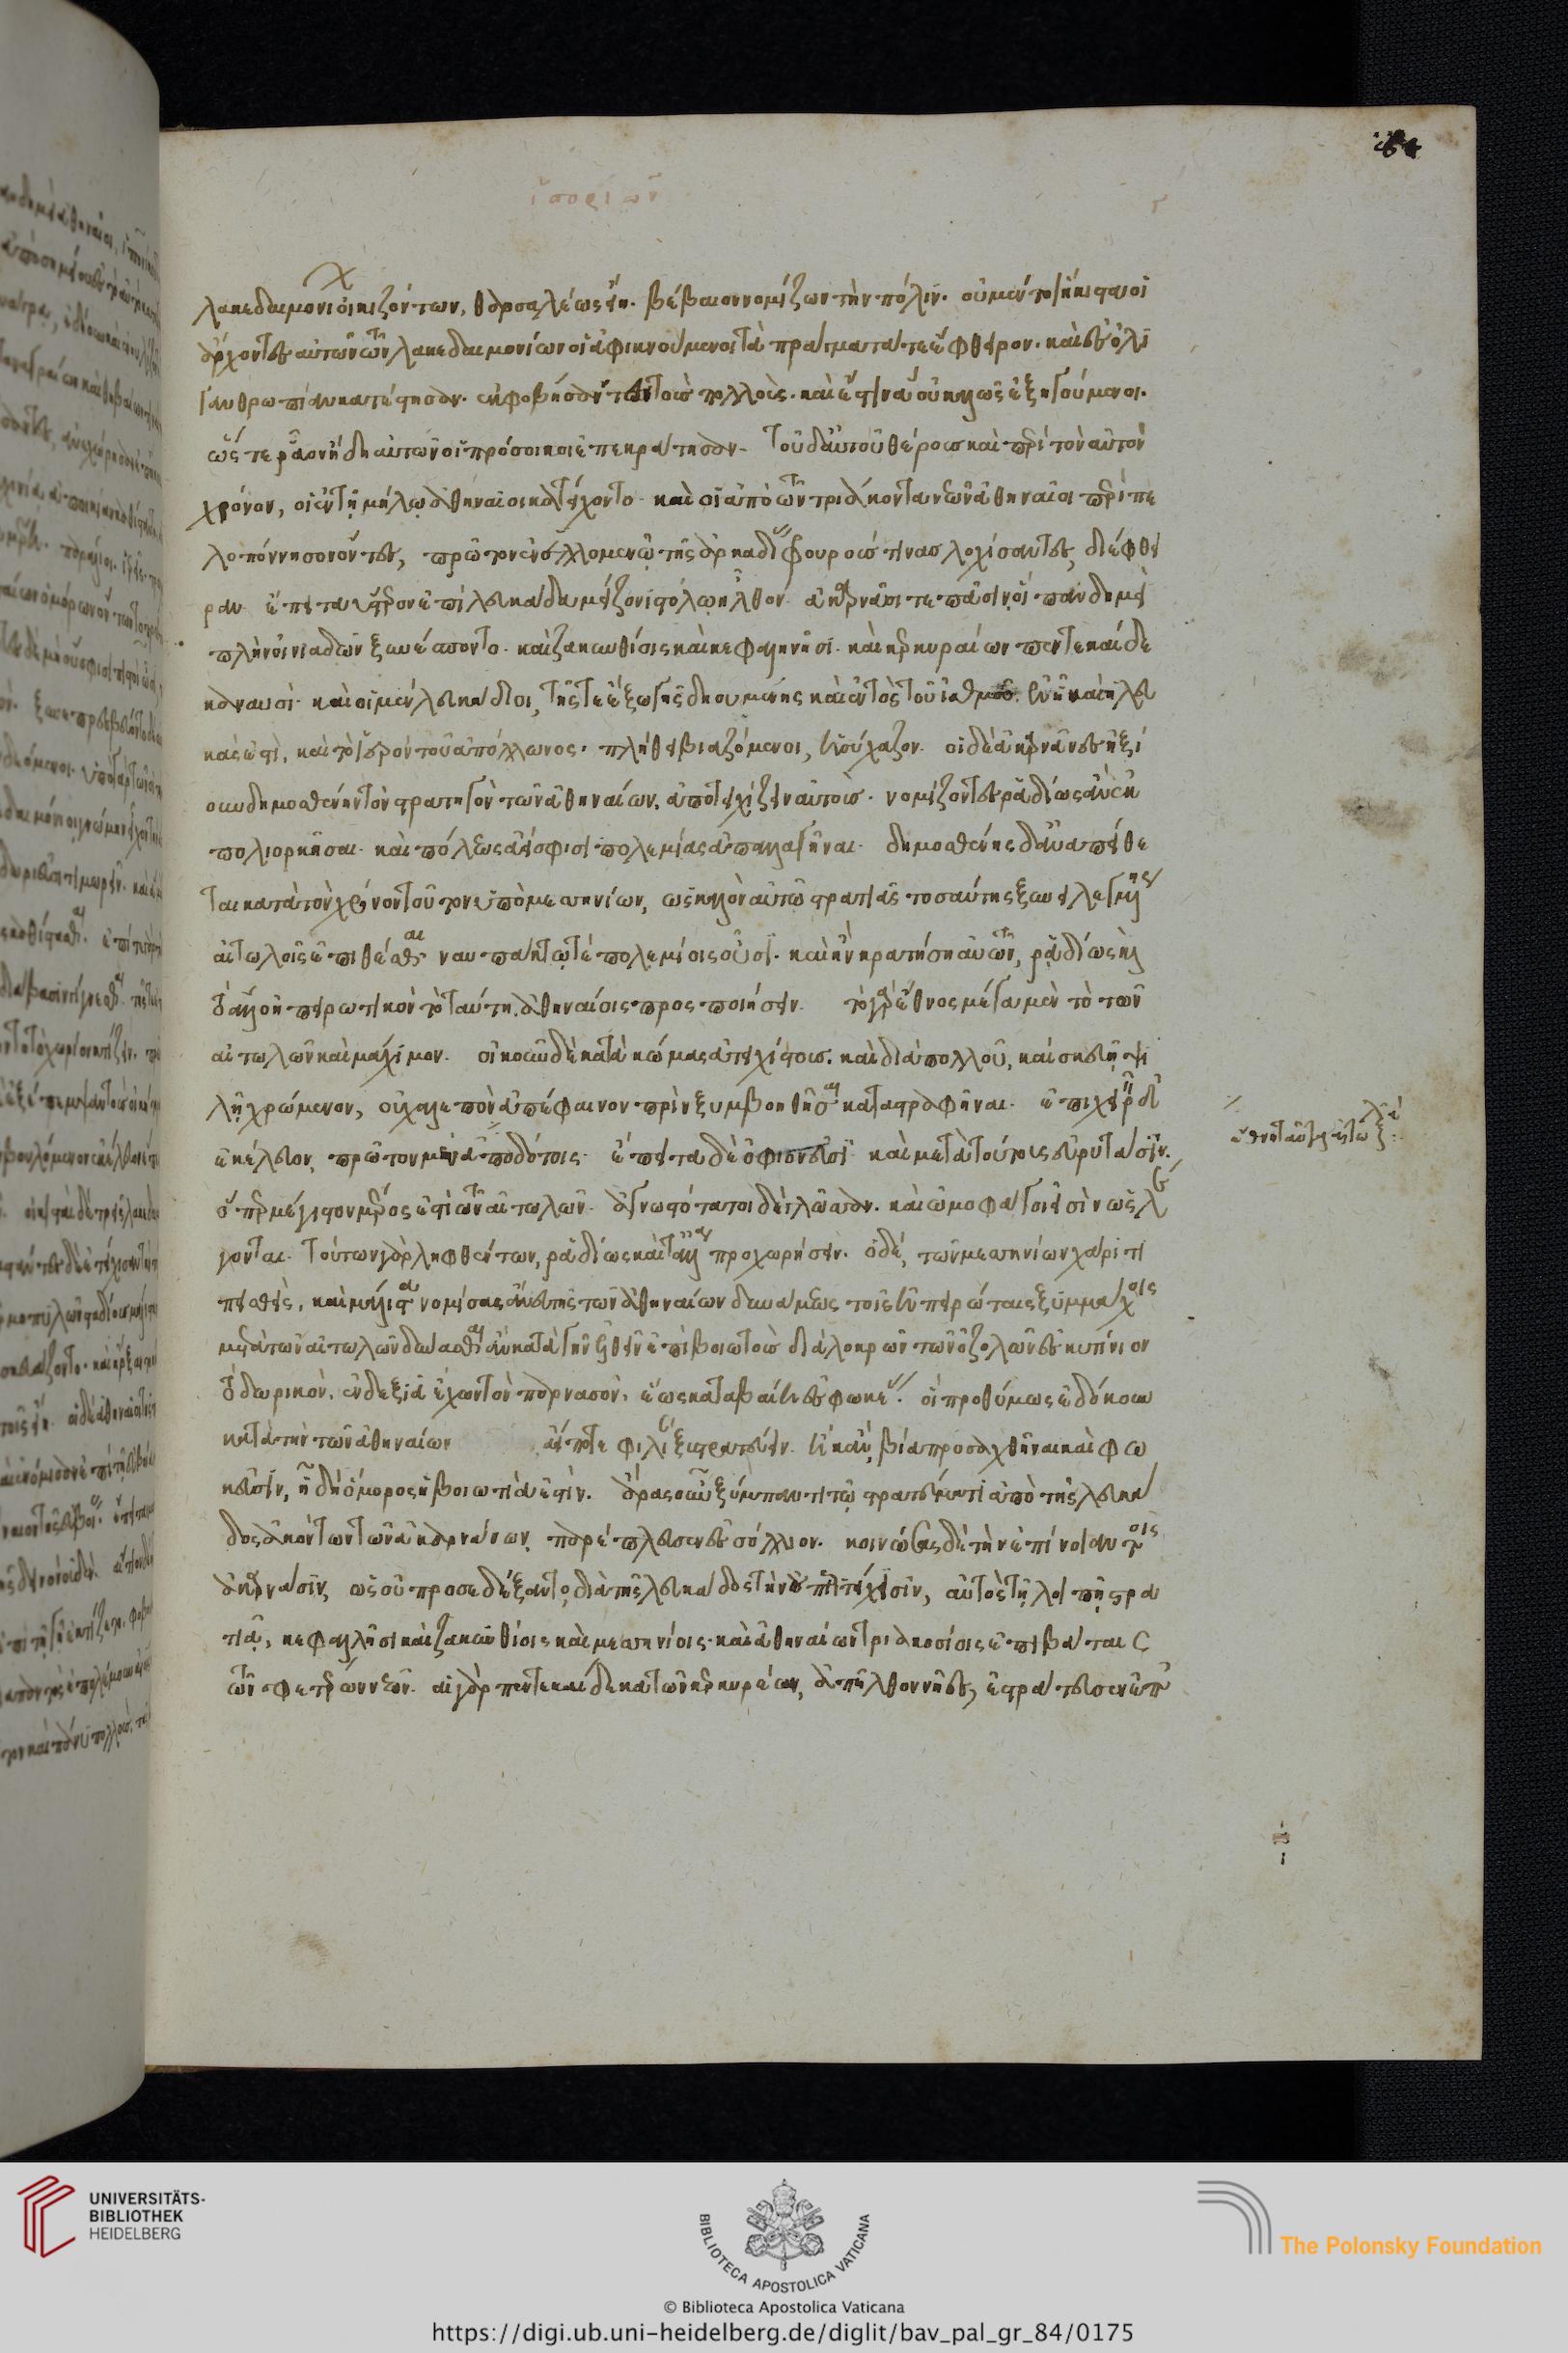 ἱστοριῶν γ
λακεδαιμονίων οἰκιζόντων, θαρσαλέως ᾔει. βέβαιον νομίζων τὴν πόλιν. οὐ μέντοι ἥκιστα οἱ
ἄρχοντες αὐτῶν τῶν λακεδαιμονίων οἱ ἀφικνούμενοι τὰ πράγματά τε ἔφθειρον. καὶ ἐς ὀλι
γανθρωπίαν κατέστησαν. ἐκφοβήσαντες τοὺς πολλοὺς. καὶ ἔστιν ἃ οὐ καλῶς ἐξηγούμενοι.
ὥστε ῥᾶον ἤδη αὐτῶν οἱ πρόσοικοι ἐπεκράτησαν. τοῦ δ' αὐτοῦ θέρους καὶ περὶ τὸν αὐτὸν
χρόνον, ὃν ἐν τῇ μήλῳ ἀθηναῖοι κατείχοντο. καὶ οἱ ἀπὸ τῶν τριάκοντα νεῶν ἀθηναῖοι περὶ πε
λοπόννησον ὄντες, πρῶτον ἐν ἐλλομενῷ τῆς ἀρκαδίας φρουρούς τινας λοχίσαντες διέφθει
ραν. ἔπειτα ὕστερον ἐπὶ λευκάδα μείζονι στόλῳ ἦλθον. ἀκαρνᾶσί τε πᾶσιν, οἳ πανδημεὶ
πλὴν οἰνιαδῶν ξυνέσποντο. καὶ ζακυνθίοις καὶ κεφαλλῆσι. καὶ κερκυραίων πεντεκαίδε
κα ναυσί. καὶ οἱ μὲν λευκάδιοι, τῆς τε ἔξω γῆς δῃουμένης καὶ ἐντὸς τοῦ ἰσθμοῦ. ἐν ᾗ καὶ ἡ λευ
κάς ἐστι, καὶ τὸ ἱερὸν τοῦ ἀπόλλωνος. πλήθει βιαζόμενοι, ἡσύχαζον. οἱ δὲ ἀκαρνᾶνες ἠξί
ουν δημοσθένην τὸν στρατηγὸν τῶν ἀθηναίων, ἀποτειχίζειν αὐτούς. νομίζοντες ῥᾳδίως ἂν ἐκ
πολιορκῆσαι. καὶ πόλεως αἰεὶ σφίσι πολεμίας ἀπαλλαγῆναι. δημοσθένης δ' ἀναπείθε
ται κατὰ τὸν χρόνον τοῦτον ὑπὸ μεσσηνίων, ὡς καλὸν αὐτῷ στρατιᾶς τοσαύτης ξυνειλεγμένης
αἰτωλοῖς ἐπιθέσθαι ναυπάκτῳ τε πολεμίοις οὖσι. καὶ ἢν κρατήσῃ αὐτῶν, ῥᾳδίως καὶ
τὸ ἄλλο ἠπειρωτικὸν τὸ ταύτῃ ἀθηναίοις προσποιήσειν. τὸ γὰρ ἔθνος μέγα μὲν τὸ τῶν
αἰτωλῶν καὶ μάχιμον. οἰκοῦν δὲ κατὰ κώμας ἀτειχίστους. καὶ διὰ πολλοῦ, καὶ σκευῇ ψι
λῇ χρώμενον, οὐ χαλεπὸν ἀπέφαινον πρὶν ξυμβοηθῆσαι καταστραφῆναι. ἐπιχειρεῖν δ'
ἐκέλευον πρῶτον μὲν ἀποδότοις. ἔπειτα δὲ ὀφιονεῦσι καὶ μετὰ τούτους εὐρυτᾶσιν.
ὅπερ μέγιστον μέρος ἐστὶ τῶν αἰτωλῶν. ἀγνωστότατοι δὲ γλῶσσαν. καὶ ὠμοφάγοι εἰσὶν ὡς λέ
γονται. τούτων γὰρ ληφθέντων, ῥᾳδίως καὶ τἆλλα προχωρήσειν. ὁ δέ, τῶν μεσσηνίων χάριτι
πεισθεὶς, καὶ μάλιστα νομίσας ἄνευ τῆς τῶν ἀθηναίων δυνάμεως τοῖς ἠπειρώταις ξυμμάχοις
μετὰ τῶν αἰτωλῶν δύνασθαι ἂν κατὰ γῆν ἐλθεῖν ἐπὶ βοιωτοὺς διὰ λοκρῶν τῶν ὀζολῶν ἐς κυτίνιον
τὸ δωρικὸν, ἐν δεξιᾷ ἔχων τὸν παρνασὸν, ἕως καταβαίη ἐς φωκέας. οἳ προθύμως ἐδόκουν
κατὰ τὴν τῶν ἀθηναίων αἰεί ποτε φιλίαν ξυστρατεύειν. ἢ κἂν βίᾳ προσαχθῆναι καὶ φω
κεῦσιν, ἤδη ὅμορος ἡ βοιωτία ἐστίν. ἄρας οὖν ξύμπαντι τῷ στρατεύματι ἀπὸ τῆς λευκά
δος ἀκόντων τῶν ἀκαρνάνων παρέπλευσεν ἐς σόλλιον. κοινώσας δὲ τὴν ἐπίνοιαν τοῖς
ἀκαρνᾶσιν, ὡς οὐ προσεδέξαντο διὰ τῆς λευκάδος τὴν οὐ περιτείχισιν, αὐτὸς τῇ λοιπῇ στρα
τιᾷ, κεφαλλῆσι καὶ ζακυνθίοις καὶ μεσσηνίοις. καὶ ἀθηναίων τριακοσίοις ἐπιβάταις
τῶν σφετέρων νεῶν. αἱ γὰρ πεντεκαίδεκα τῶν κερκυραίων ἀπῆλθον νῆες, ἐστράτευσεν ἐπ'
UNIVERSITÄTS-
BIBLIOTHEK
HEIDELBERG
BIBLIOTECA APOSTOLICA VATICANA
The Polonsky Foundation
© Biblioteca Apostolica Vaticana
https://digi.ub.uni-heidelberg.de/diglit/bav_pal_gr_84/0175